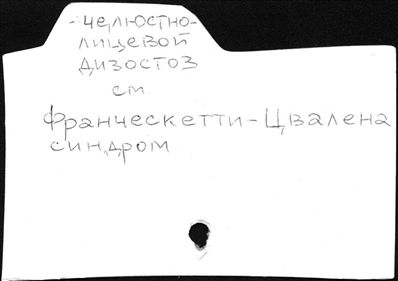 -челюстно-
лицевой
дизостоз
см.
Франческетти-Цвалена
синдром